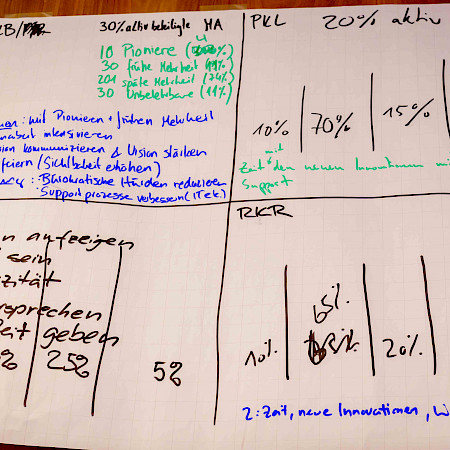 30% aktiv beteiligte MA
10 Pioniere (4%)
30 frühe Mehrheit
201 späte Mehrheit (74%)
30 Unbelehrbare (11%)
: mit Pionieren + frühen Mehrheit
intensivieren
kommunizieren & Vision stärken
feiern (Sichtbarkeit erhöhen)
: Bürokratische Hürden reduzieren
Support prozesse verbessern (IT etc.)
PKL 20% aktiv
10% 70% 15%
mit
Zeit den neuen Innovationen
Support
aufzeigen
sein
geben
25% 5%
RKR
65%
10% 20%
2: Zeit, neue Innovationen,